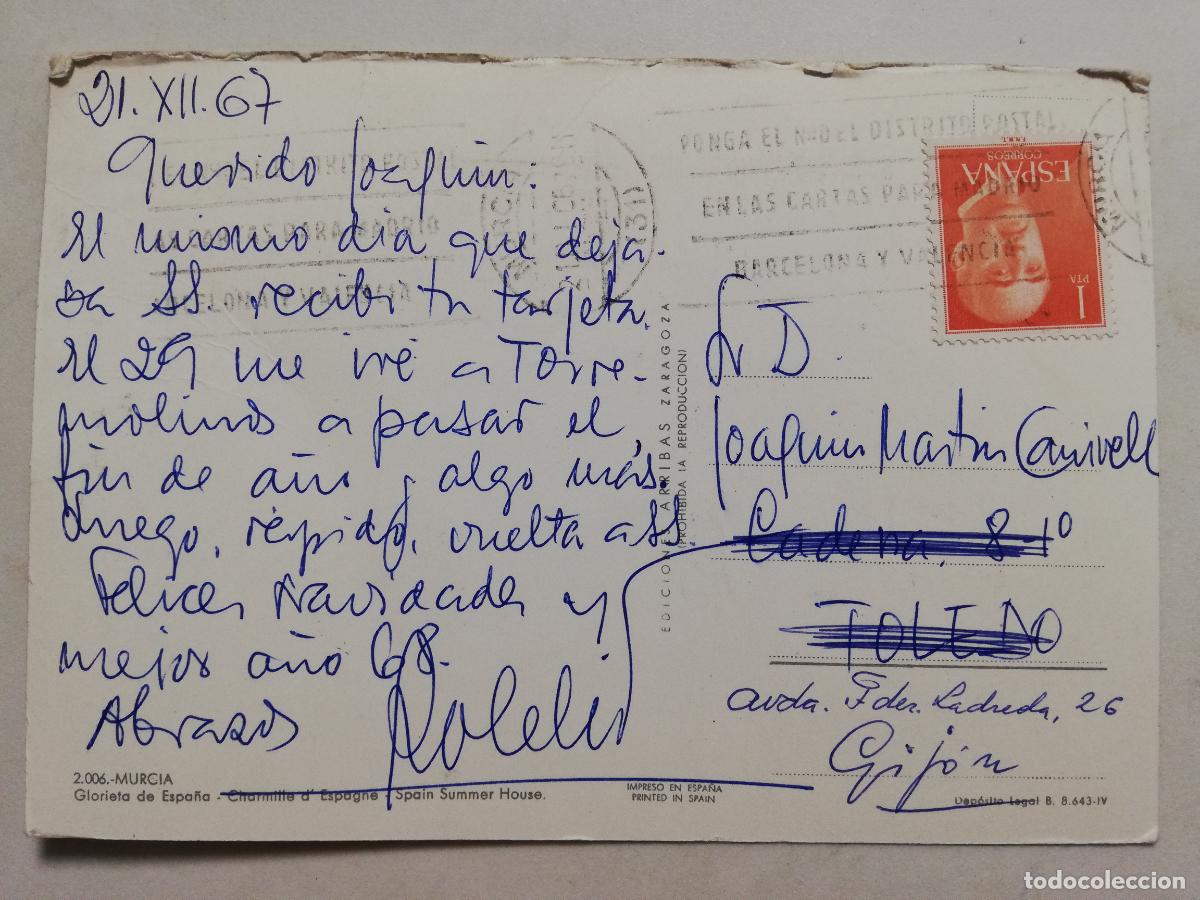 21.XII.67
Querido Joaquin:
El mismo dia que deja-
ba SS. recibi tu tarjeta.
El 29 me iré a Torre-
molinos a pasar el
fin de año y algo más.
Luego, rápido, vuelta a SS
Felices Navidades y
mejor año 68.
Abrazos
2.006.-MURCIA
Glorieta de España - Charmille d' Espagne - Spain Summer House.
IMPRESO EN ESPAÑA
PRINTED IN SPAIN
EDICIONES ARRIBAS ZARAGOZA
(PROHIBIDA LA REPRODUCCION)
PONGA EL Nº DEL DISTRITO POSTAL
EN LAS CARTAS PARA MADRID
BARCELONA Y VALENCIA
MURCIA
ESPAÑA
CORREOS
F.N.M.T.
1
PTA
Sr D.
Joaquin Martin Canivell
Cadena, 8 1º
TOLEDO
Avda. Fdez. Ladreda, 26
Gijón
Depósito Legal B. 8.643-IV
todocoleccion